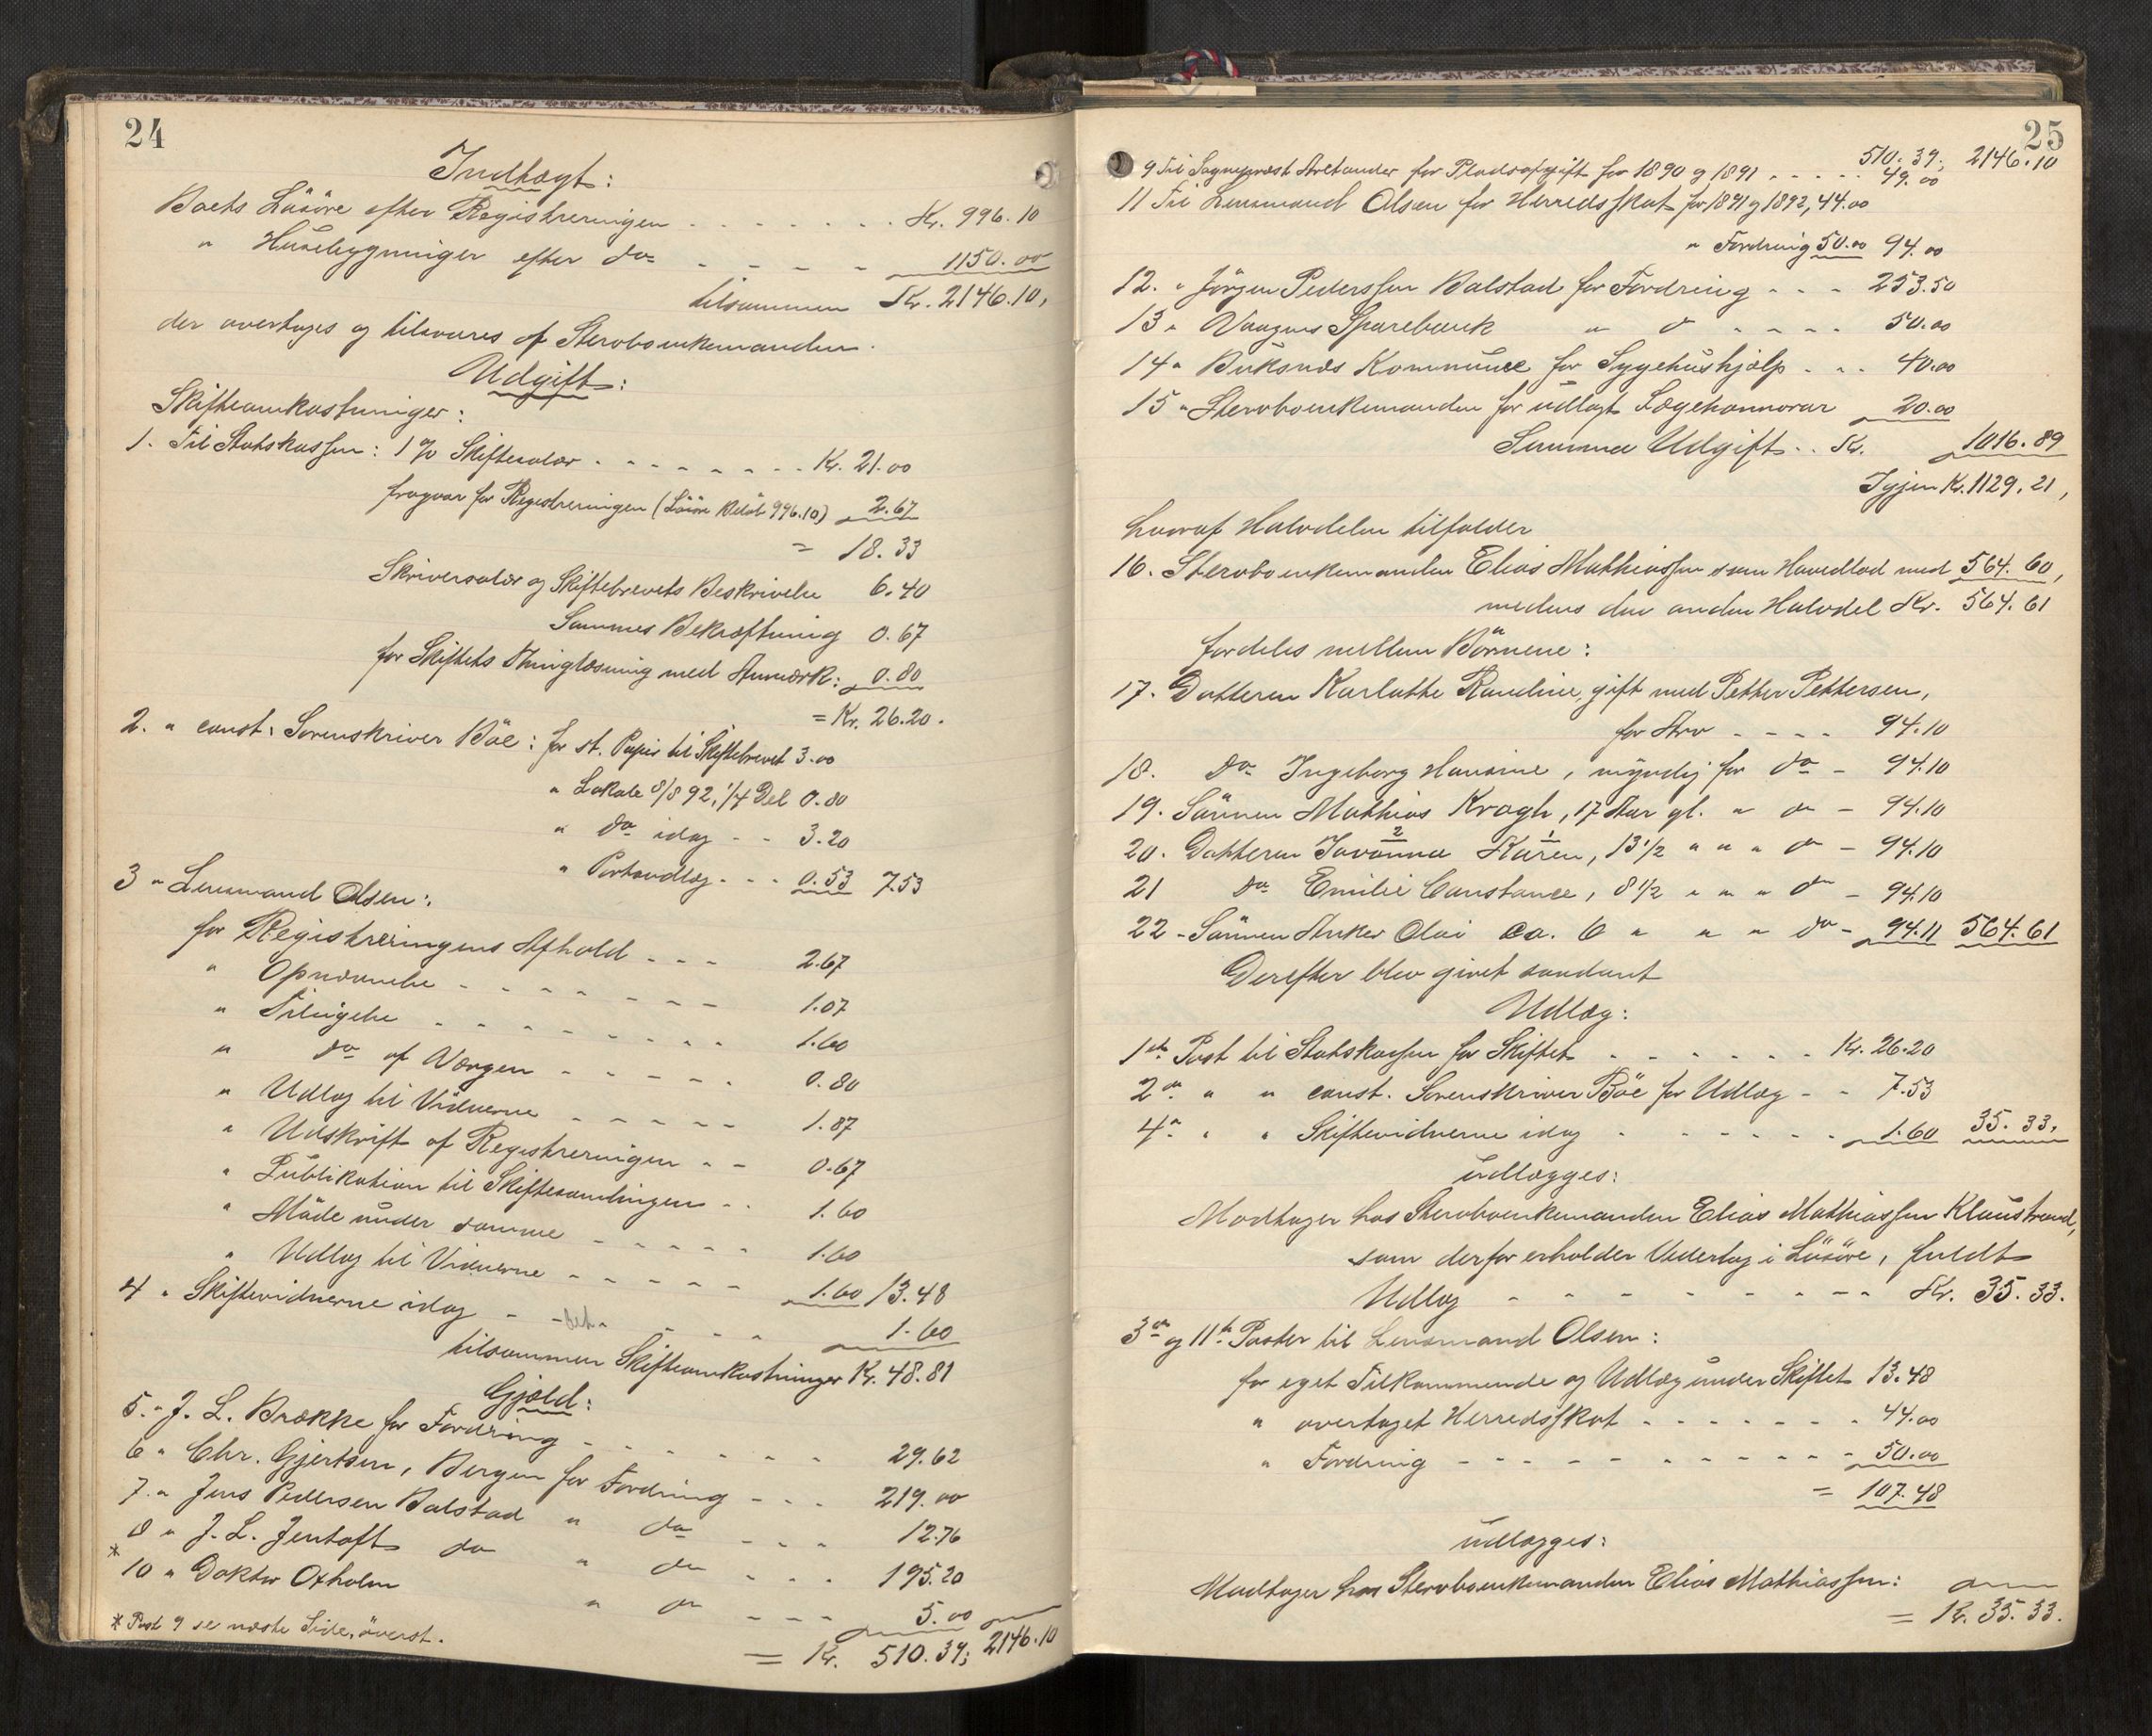 24
Indtægt:
Boets Løsøre efter Registreringen - - - - - - - Kr. 996.10
" Husebygninger efter do - - - - 1150.00
tilsammen Kr. 2146.10,
der overtages og tilsvares af Stervboenkemanden.
Udgift:
Skifteomkostninger:
1. Til Statskassen: 1 % Skiftesalær - - - - - - - - Kr. 21.00
fragaar for Registreringen (Løsøre Beløb 996.10) 2.67
= 18.33
Skriversalær og Skiftebrevets Beskrivelse 6.40
Sammes Bekræftning 0.67
for Skiftets Thinglæsning med Anmærk: 0.80
= Kr. 26.20.
2. " const. Sorenskriver Bõe: for st. Papir til Skiftebrevet 3.00
" Lokale 8/8 92, 1/4 Del 0.80
" do idag - - 3.20
" Portoudlæg - - - 0.53 7.53
3 " Lensmand Olsen:
for Registreringens Afhold - - - 2.67
" Opnævnelse - - - - - - - - 1.07
" Tilsigelse - - - - - - - - 1.60
" do af Værgen - - - - - 0.80
" Udlæg til Vidnerne - - - - - - 1.87
" Udskrift af Registreringen - - 0.67
" Publikation til Skiftesamlingen - - 1.60
" Møde under samme - - - - - 1.60
" Udlæg til Vidnerne - - - - - - 1.60 13.48
4 " Skiftevidnerne idag - - - - - 1.60
tilsammen Skifteomkostninger Kr. 48.81
Gjæld:
5. " J. L. Brække for Fordring - - - - - - 29.62
6 " Chr. Gjertsen, Bergen for Fordring - - - 219.00
7. " Jens Pedersen Balstad " do - - - 12.76
8 " J. L. Jentoft do " do - - - - 195.20
*
10 " Doktor Oxholm " do - - - 5.00
= Kr. 510.39; 2146.10
* Post 9 se næste Side, øverst.
25
510.39; 2146.10
9 Til Sogneprest Arctander for Pladsafgift for 1890 og 1891 - - - - - 49.00
11 Til Lensmand Olsen for Herredsskat for 1891 og 1892, 44.00
" Fordring 50.00 94.00
12. " Jörgen Pederssen Balstad for Fordring - - - 253.50
13 " Vaagens Sparebank " do - - - - 50.00
14 " Buksnæs Kommune for Sygehushjælp - - - 40.00
15 " Stervboenkemanden for udlagt Lægehonnorar 20.00
Summa Udgift - - Kr. 1016.89
Igjen Kr. 1129.21,
hvoraf Halvdelen tilfalder
16. Stervboenkemanden Elias Mathiassen som Hovedlod med 564.60,
medens den anden Halvdel Kr. 564.61
fordeles mellem Börnene:
17. Datteren Karlotte Randine, gift med Petter Pettersen,
for Arv - - - - 94.10
18. do Ingeborg Hansine, myndig for do - 94.10
19. Sönnen Mathias Krogh, 17 Aar gl. " do - 94.10
2 1
20. Datteren Jovanna Karen, 13 1/2 " " " do - 94.10
21 do Emilie Constance, 8 1/2 " " " do - 94.10
22 - Sönnen Anker Olai ca. 6 " " " do - 94.11 564.61
Derefter blev givet saadant
Udlæg:
1ste Post til Statskassen for Skiftet - - - - - - - Kr. 26.20
2den " " const. Sorenskriver Böe for Udlæg - - 7.53
4de " " Skiftevidnerne idag - - - - - - 1.60 35.33,
udlægges:
Modtager hos Stervboenkemanden Elias Mathiassen Klaustrand,
som derfor erholder Vederlag i Løsøre, fuldt
Udlæg - - - - - - - - - Kr. 35.33.
3die og 11te Poster til Lensmand Olsen:
for eget Tilkommende og Udlæg under Skiftet 13.48
" overtaget Herredsskat - - - - - - - 44.00
" Fordring - - - - - - - - - - - 50.00
= 107.48
udlægges:
Modtager hos Stervboenkemanden Elias Mathiassen:
= Kr. 35.33.